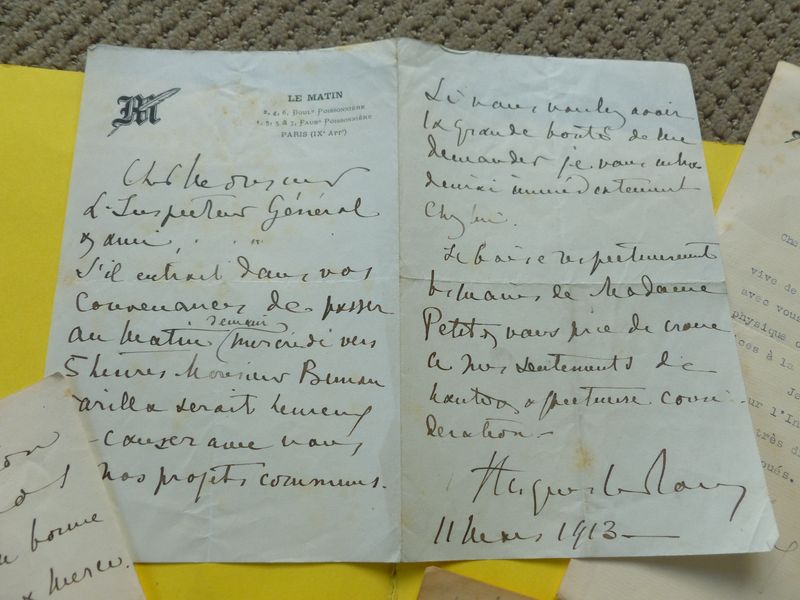 M
LE MATIN
2, 4, 6, Boulᵈ Poissonnière
1, 3, 5 & 7, Faubᵍ Poissonnière
PARIS (IXᵉ Arrᵗ)
Cher Monsieur
L'Inspecteur Général
& ami,
S'il entrait dans vos
convenances de passer
demain
au Matin (mercredi vers
5 heures Monsieur Bunau
arilla serait heureux
causer avec vous
nos projets communs.
Si vous voulez avoir
la grande bonté de me
demander je vous
immédiatement
chez lui.
Je baise respectueusement
les mains de Madame
Petit & vous prie de croire
à mes sentiments de
haute & affectueuse consi
dération -
Hugues Le Roux
11 Mars 1913 —
on
bonne
& merci.
Che
vive de
avec vous
physique d
ces à la
Je
ur l'In
très d
oués.